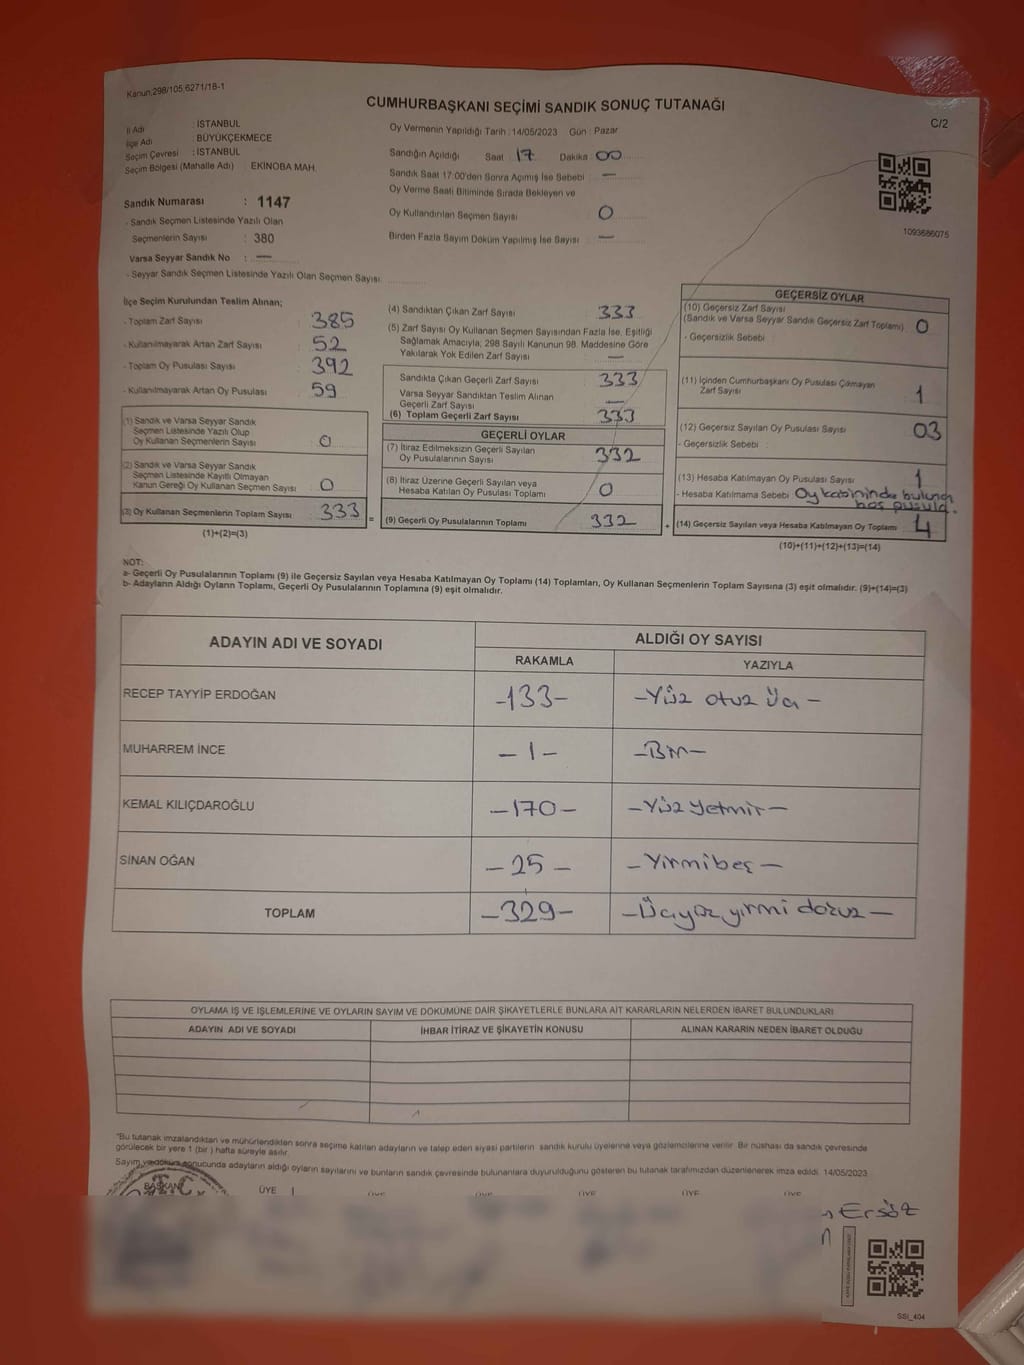 Kanun:298/105,6271/18-1
CUMHURBAŞKANI SEÇİMİ SANDIK SONUÇ TUTANAĞI
C/2
İl Adı : İSTANBUL
İlçe Adı : BÜYÜKÇEKMECE
Seçim Çevresi : İSTANBUL
Seçim Bölgesi (Mahalle Adı) : EKİNOBA MAH.
Sandık Numarası : 1147
- Sandık Seçmen Listesinde Yazılı Olan
Seçmenlerin Sayısı : 380
Varsa Seyyar Sandık No : —
- Seyyar Sandık Seçmen Listesinde Yazılı Olan Seçmen Sayısı
Oy Vermenin Yapıldığı Tarih : 14/05/2023 Gün : Pazar
Sandığın Açıldığı Saat 17 Dakika 00
Sandık Saat 17:00'den Sonra Açımış İse Sebebi : —
Oy Verme Saati Bitiminde Sırada Bekleyen ve
Oy Kullandırılan Seçmen Sayısı 0
Birden Fazla Sayım Döküm Yapılmış İse Sayısı —
1093686075
İlçe Seçim Kurulundan Teslim Alınan;
- Toplam Zarf Sayısı 385
- Kullanılmayarak Artan Zarf Sayısı 52
- Toplam Oy Pusulası Sayısı 392
- Kullanılmayarak Artan Oy Pusulası 59
(1) Sandık ve Varsa Seyyar Sandık
Seçmen Listesinde Yazılı Olup
Oy Kullanan Seçmenlerin Sayısı 0
(2) Sandık ve Varsa Seyyar Sandık
Seçmen Listesinde Kayıtlı Olmayan
Kanun Gereği Oy Kullanan Seçmen Sayısı 0
(3) Oy Kullanan Seçmenlerin Toplam Sayısı 333 =
(1)+(2)=(3)
(4) Sandıktan Çıkan Zarf Sayısı 333
(5) Zarf Sayısı Oy Kullanan Seçmen Sayısından Fazla İse, Eşitliği
Sağlamak Amacıyla; 298 Sayılı Kanunun 98. Maddesine Göre
Yakılarak Yok Edilen Zarf Sayısı —
Sandıkta Çıkan Geçerli Zarf Sayısı 333
Varsa Seyyar Sandıktan Teslim Alınan
Geçerli Zarf Sayısı —
(6) Toplam Geçerli Zarf Sayısı 333
GEÇERLİ OYLAR
(7) İtiraz Edilmeksizin Geçerli Sayılan
Oy Pusulalarının Sayısı 332
(8) İtiraz Üzerine Geçerli Sayılan veya
Hesaba Katılan Oy Pusulası Toplamı 0
(9) Geçerli Oy Pusulalarının Toplamı 332 +
GEÇERSİZ OYLAR
(10) Geçersiz Zarf Sayısı
(Sandık ve Varsa Seyyar Sandık Geçersiz Zarf Toplamı) 0
- Geçersizlik Sebebi :
(11) İçinden Cumhurbaşkanı Oy Pusulası Çıkmayan
Zarf Sayısı 1
(12) Geçersiz Sayılan Oy Pusulası Sayısı 03
- Geçersizlik Sebebi :
(13) Hesaba Katılmayan Oy Pusulası Sayısı 1
- Hesaba Katılmama Sebebi Oy kabininde bulunan
boş pusula.
(14) Geçersiz Sayılan veya Hesaba Katılmayan Oy Toplamı 4
(10)+(11)+(12)+(13)=(14)
NOT:
a- Geçerli Oy Pusulalarının Toplamı (9) ile Geçersiz Sayılan veya Hesaba Katılmayan Oy Toplamı (14) Toplamları, Oy Kullanan Seçmenlerin Toplam Sayısına (3) eşit olmalıdır. (9)+(14)=(3)
b- Adayların Aldığı Oyların Toplamı, Geçerli Oy Pusulalarının Toplamına (9) eşit olmalıdır.
ADAYIN ADI VE SOYADI ALDIĞI OY SAYISI
RAKAMLA YAZIYLA
RECEP TAYYİP ERDOĞAN -133- -Yüz otuz üç-
MUHARREM İNCE -1- -Bir-
KEMAL KILIÇDAROĞLU -170- -Yüz yetmiş-
SİNAN OĞAN -25- -Yirmibeş-
TOPLAM -329- -Üçyüz yirmi dokuz-
OYLAMA İŞ VE İŞLEMLERİNE VE OYLARIN SAYIM VE DÖKÜMÜNE DAİR ŞİKAYETLERLE BUNLARA AİT KARARLARIN NELERDEN İBARET BULUNDUKLARI
ADAYIN ADI VE SOYADI İHBAR İTİRAZ VE ŞİKAYETİN KONUSU ALINAN KARARIN NEDEN İBARET OLDUĞU
"Bu tutanak imzalandıktan ve mühürlendikten sonra seçime katılan adayların ve talep eden siyasi partilerin sandık kurulu üyelerine veya gözlemcilerine verilir. Bir nüshası da sandık çevresinde
görülecek bir yere 1 (bir) hafta süreyle asılır.
Sayım ve döküm sonucunda adayların aldığı oyların sayılarını ve bunların sandık çevresinde bulunanlara duyurulduğunu gösteren bu tutanak tarafımızdan düzenlenerek imza edildi. 14/05/2023
BAŞKAN ÜYE ÜYE ÜYE ÜYE ÜYE ÜYE
T.C.
Ersöz
SSİ_404